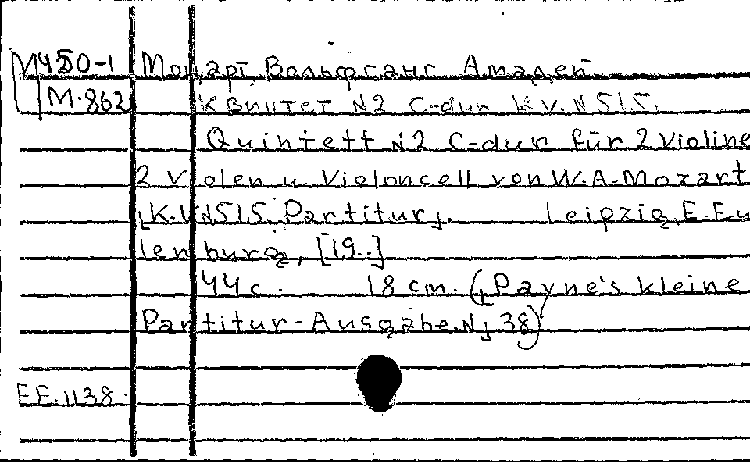 М450-1 Моцарт Вольфганг Амадей.
М.862 Квинтет N2 C-dur K.V.N515.
Quintett N2 C-dur für 2 Violine
2 Violen u. Violoncell von W.A.Mozart
K.V.N515. Partitur. Leipzig, E.Eu
lenburg, [19..]
44 с. 18 cm. (Payne's kleine
Partitur-Ausgabe.N 38)
E.E.1138.